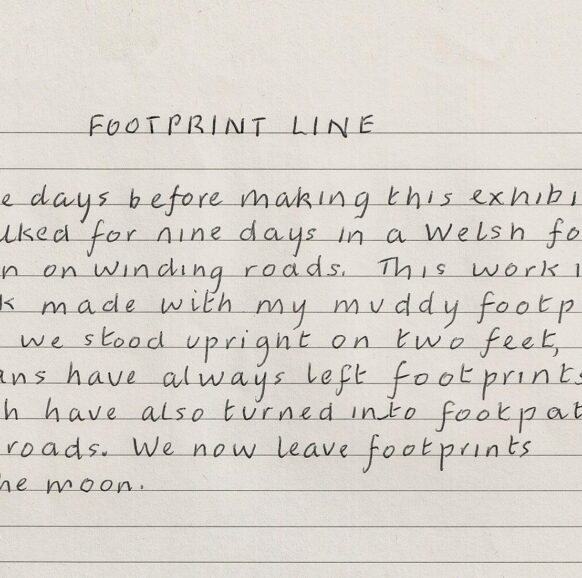 FOOTPRINT LINE
e days before making this exhibi
lked for nine days in a Welsh fo
n on winding roads. This work i
k made with my muddy footp
we stood upright on two feet,
ans have always left footprints
h have also turned into footpat
roads. We now leave footprints
he moon.